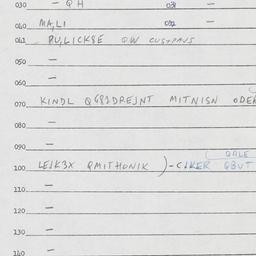 030 — Q H 031 —
040 MA,LI 032 —
041 PU,LICKSE QW CUSTPAUS
050 —
060 —
070 KINDL Q681DREJNT MITNISN ODER
080 —
090 —
QALE
100 LEJK3X QMITHONIK )-CIKER QBUT
110 —
120 —
130 —
140 —